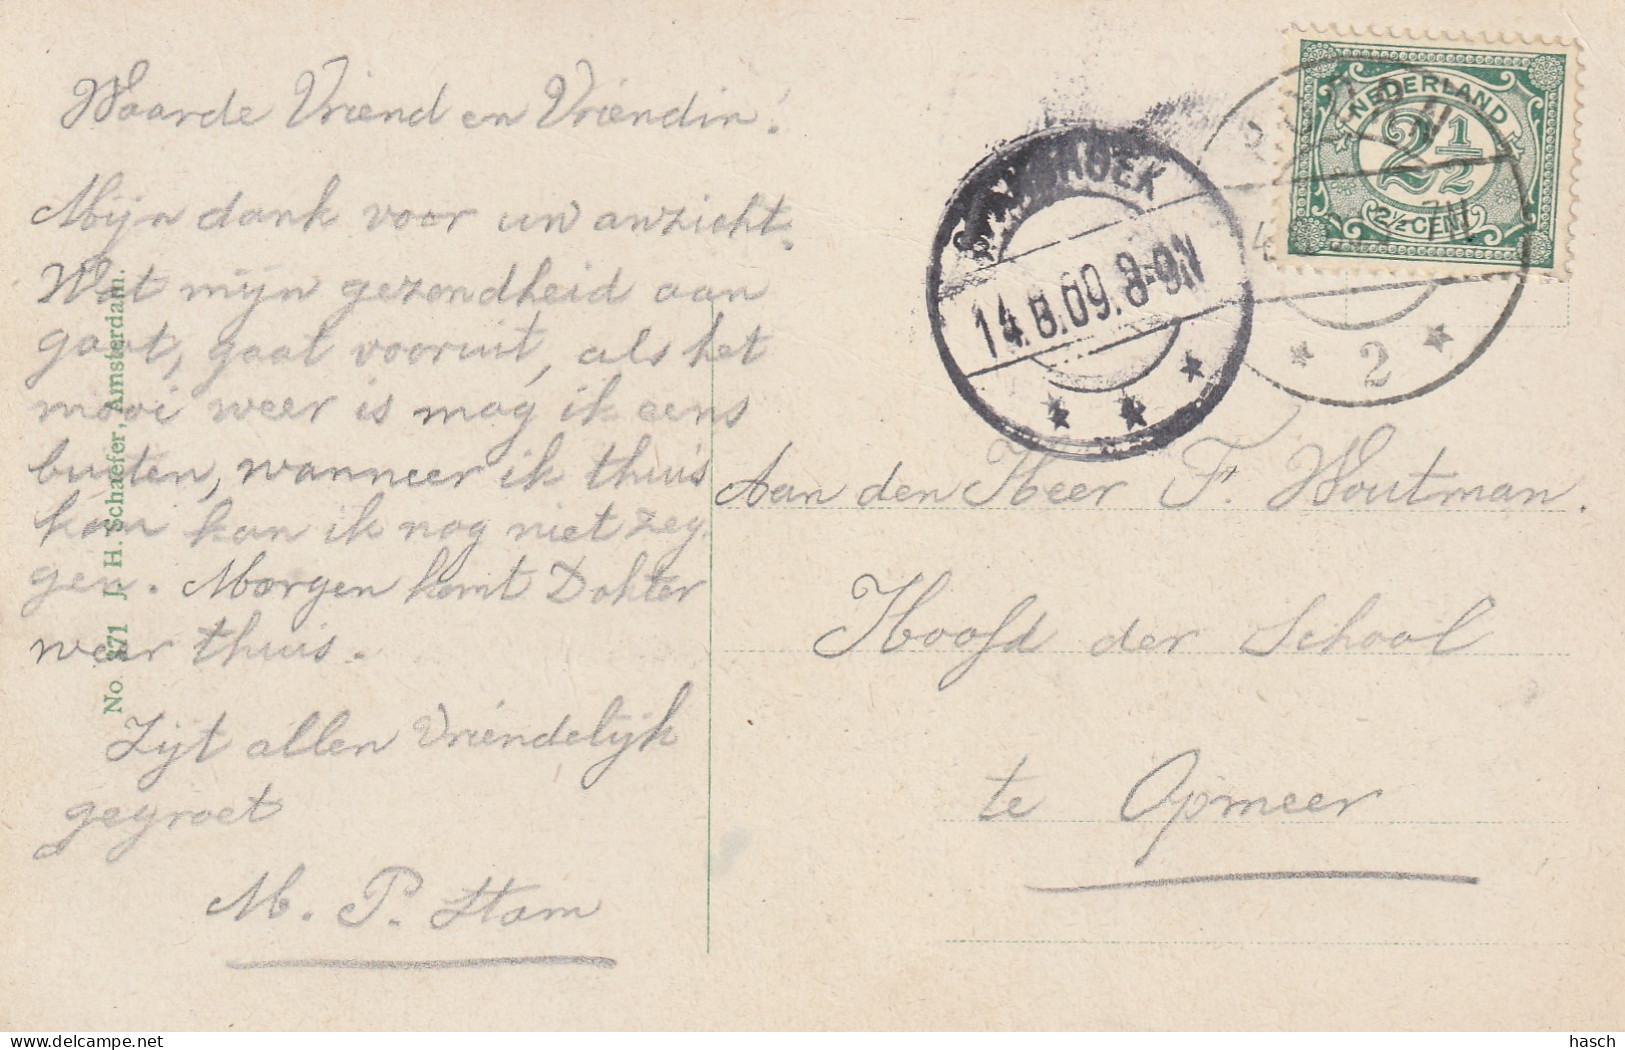 Waarde Vriend en Vriendin!
Mijn dank voor uw anzicht.
Wat mijn gezondheid aan
gaat, gaat vooruit, als het
mooi weer is mag ik eens
buiten, wanneer ik thuis
kom kan ik nog niet zeg
gen. Morgen komt Dokter
weer thuis.
Zijt allen Vriendelijk
gegroet
M. P. Stam
No. 371 J. H. Schaefer, Amsterdam.
NEDERLAND
2½
2½ CENT
14.8.09.8-9N
2
Aan den Heer F. Woutman.
Hoofd der School
te Opmeer
hasch
delcampe.net